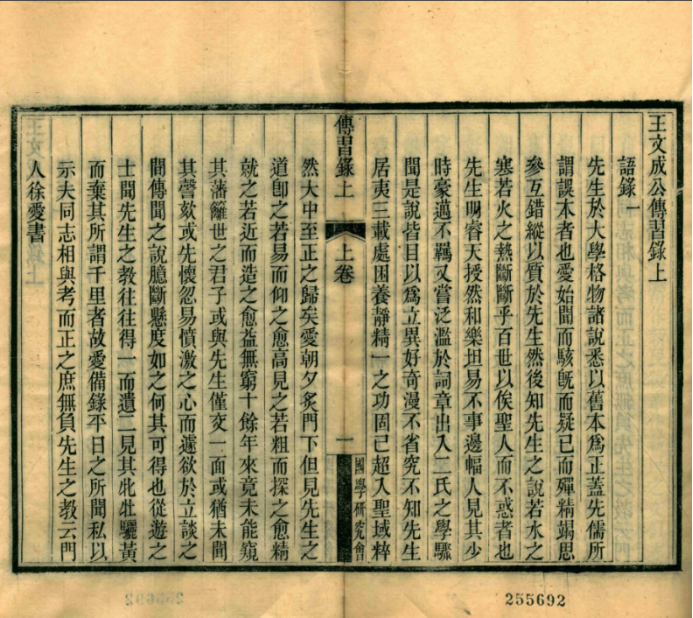 王文成公傳習錄上
語錄一
先生於大學格物諸說悉以舊本爲正蓋先儒所
謂誤本者也愛始聞而駭旣而疑已而殫精竭思
參互錯縱以質於先生然後知先生之說若水之
寒若火之熱斷斷乎百世以俟聖人而不惑者也
先生明睿天授然和樂坦易不事邊幅人見其少
時豪邁不羈又嘗泛濫於詞章出入二氏之學驟
聞是說皆目以爲立異好奇漫不省究不知先生
居夷三載處困養靜精一之功固已超入聖域粹
傳習錄上
上卷
一
國學硏究會
然大中至正之歸矣愛朝夕炙門下但見先生之
道卽之若易而仰之愈高見之若粗而探之愈精
就之若近而造之愈益無窮十餘年來竟未能窺
其藩籬世之君子或與先生僅交一面或猶未聞
其謦欬或先懷忽易憤激之心而遽欲於立談之
間傳聞之說臆斷懸度如之何其可得也從遊之
士聞先生之教往往得一而遺二見其牝牡驪黃
而棄其所謂千里者故愛備錄平日之所聞私以
示夫同志相與考而正之庶無負先生之教云門
人徐愛書
255692